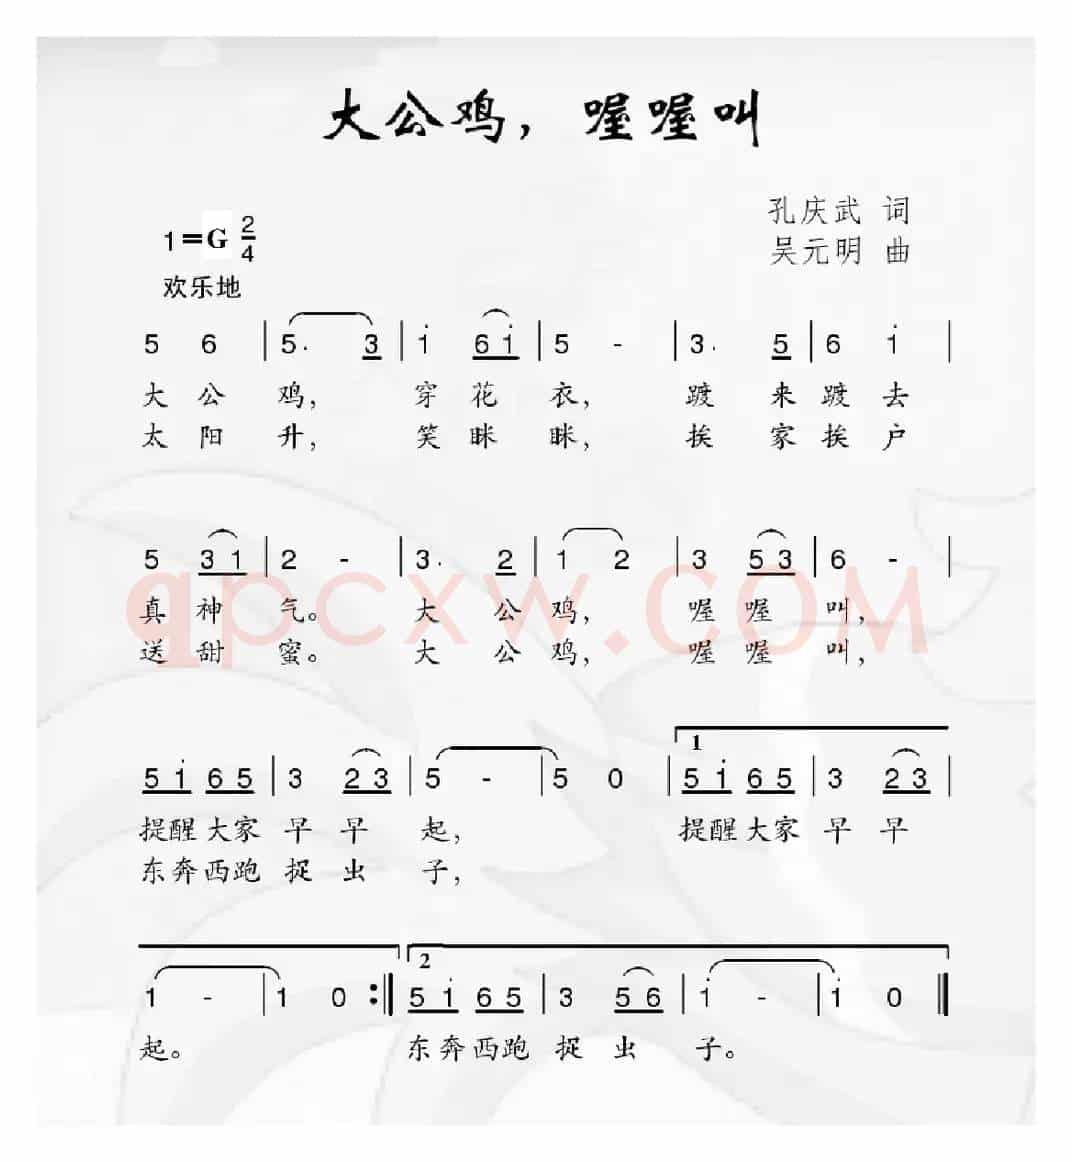 大公鸡，喔喔叫
孔庆武 词
1=G 2/4
吴元明 曲
欢乐地
5 6 | 5. 3 | i 6 i | 5 - | 3. 5 | 6 i |
大 公 鸡， 穿 花 衣， 踱 来 踱 去
太 阳 升， 笑 眯 眯， 挨 家 挨 户
5 3 1 | 2 - | 3. 2 | 1 2 | 3 5 3 | 6 - |
真 神 气。 大 公 鸡， 喔 喔 叫，
送 甜 蜜。 大 公 鸡， 喔 喔 叫，
qpcxw.COM
1
5 i 6 5 | 3 2 3 | 5 - | 5 0 | 5 i 6 5 | 3 2 3 |
提醒大家 早 早 起， 提醒大家 早 早
东奔西跑 捉 虫 子，
2
1 - | 1 0 :| 5 i 6 5 | 3 5 6 | i - | i 0 ‖
起。 东奔西跑 捉 虫 子。